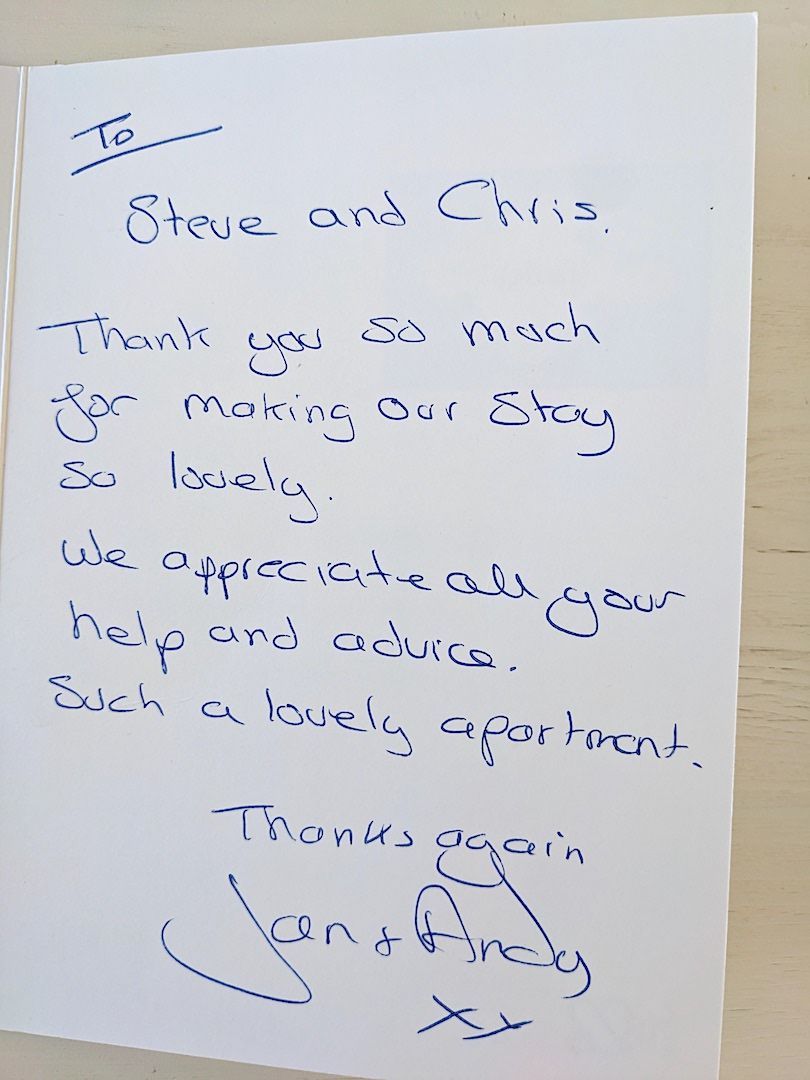 To
Steve and Chris.
Thank you so much
for making our stay
so lovely.
We appreciate all your
help and advice.
Such a lovely apartment.
Thanks again
Jan & Andy
xx